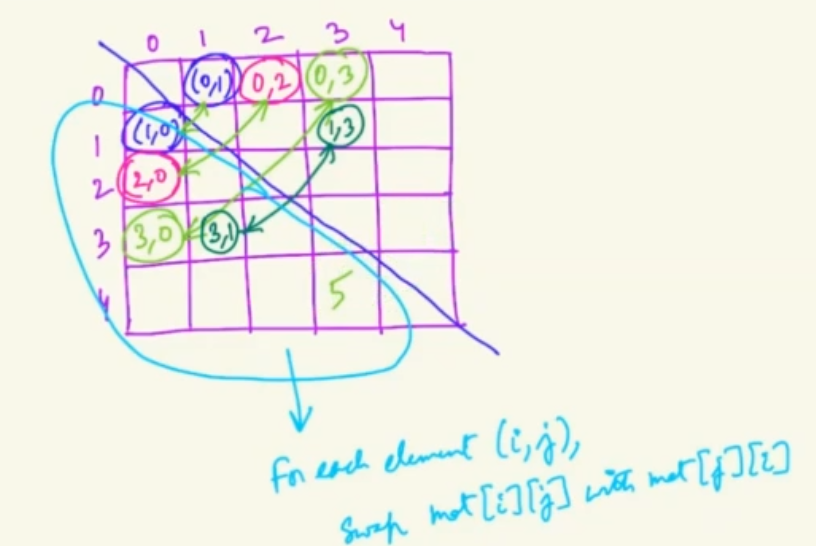 0 1 2 3 4
0 (0,1) 0,2 0,3
1 (1,0) 1,3
2 2,0
3 3,0 3,1
4 5
For each element (i,j),
Swap mat[i][j] with mat[j][i]